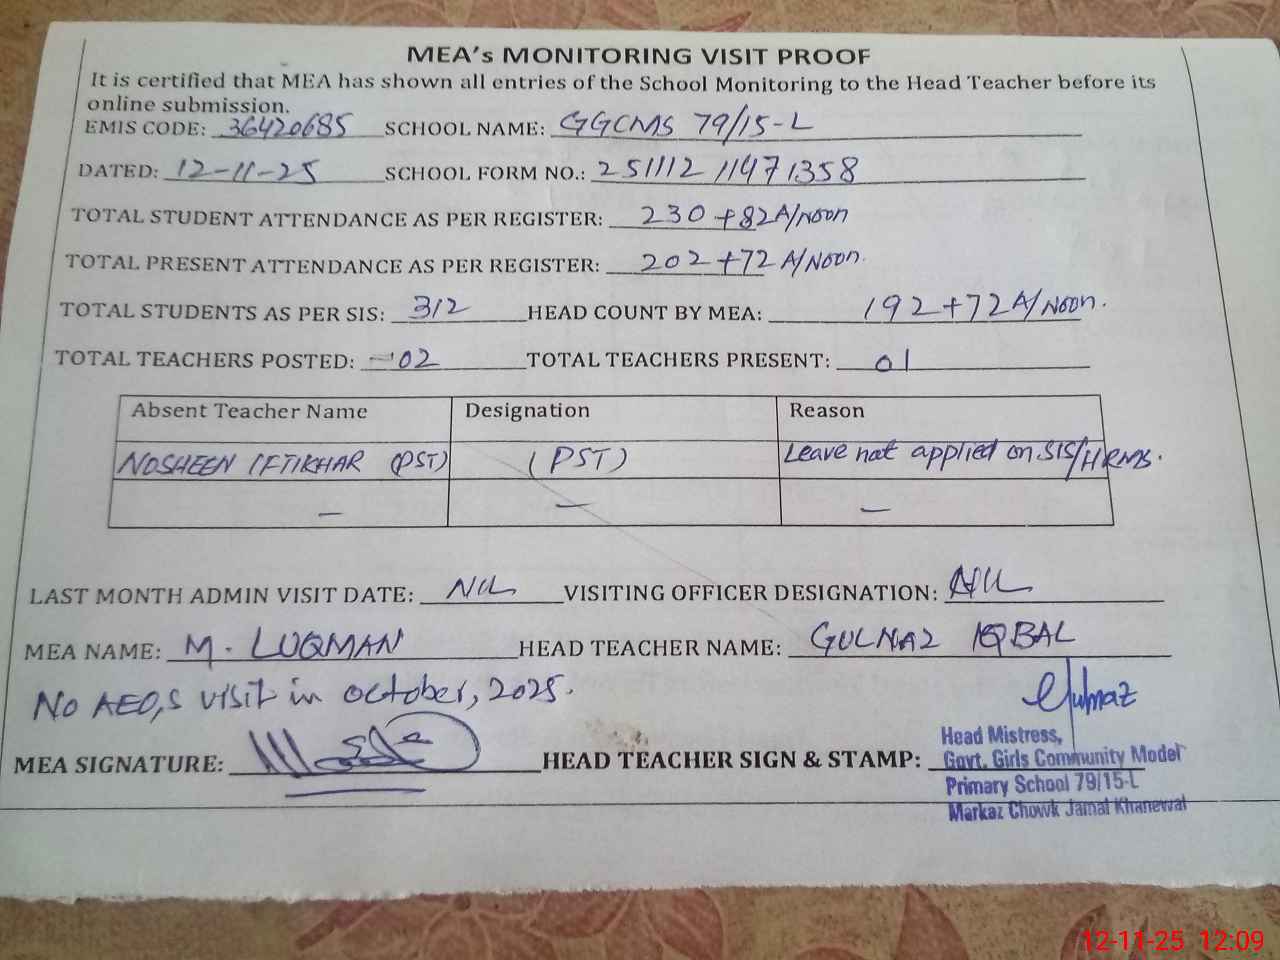 MEA's MONITORING VISIT PROOF
It is certified that MEA has shown all entries of the School Monitoring to the Head Teacher before its
online submission.
EMIS CODE: 36420685 SCHOOL NAME: GGCMS 79/15-L
DATED: 12-11-25 SCHOOL FORM NO.: 251112 11471358
TOTAL STUDENT ATTENDANCE AS PER REGISTER: 230 +82A/Noon
TOTAL PRESENT ATTENDANCE AS PER REGISTER: 202 +72 A/Noon.
TOTAL STUDENTS AS PER SIS: 312 HEAD COUNT BY MEA: 192+72A/Noon.
TOTAL TEACHERS POSTED: 02 TOTAL TEACHERS PRESENT: 01
Absent Teacher Name Designation Reason
NOSHEEN IFTIKHAR (PST) (PST) Leave not applied on SIS/HRMS.
– – –
LAST MONTH ADMIN VISIT DATE: NIL VISITING OFFICER DESIGNATION: NIL
MEA NAME: M. LUQMAN HEAD TEACHER NAME: GULNAZ IQBAL
No AEO,s visit in october, 2025.
Gulnaz
MEA SIGNATURE: HEAD TEACHER SIGN & STAMP:
Head Mistress,
Govt. Girls Community Model
Primary School 79/15-L
Markaz Chowk Jamal Khanewal
12-11-25 12:09